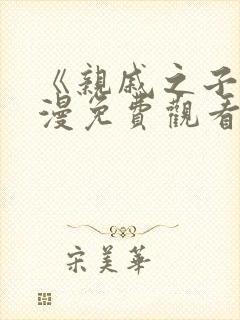 《親戚之子
漫免費觀看
宋美華